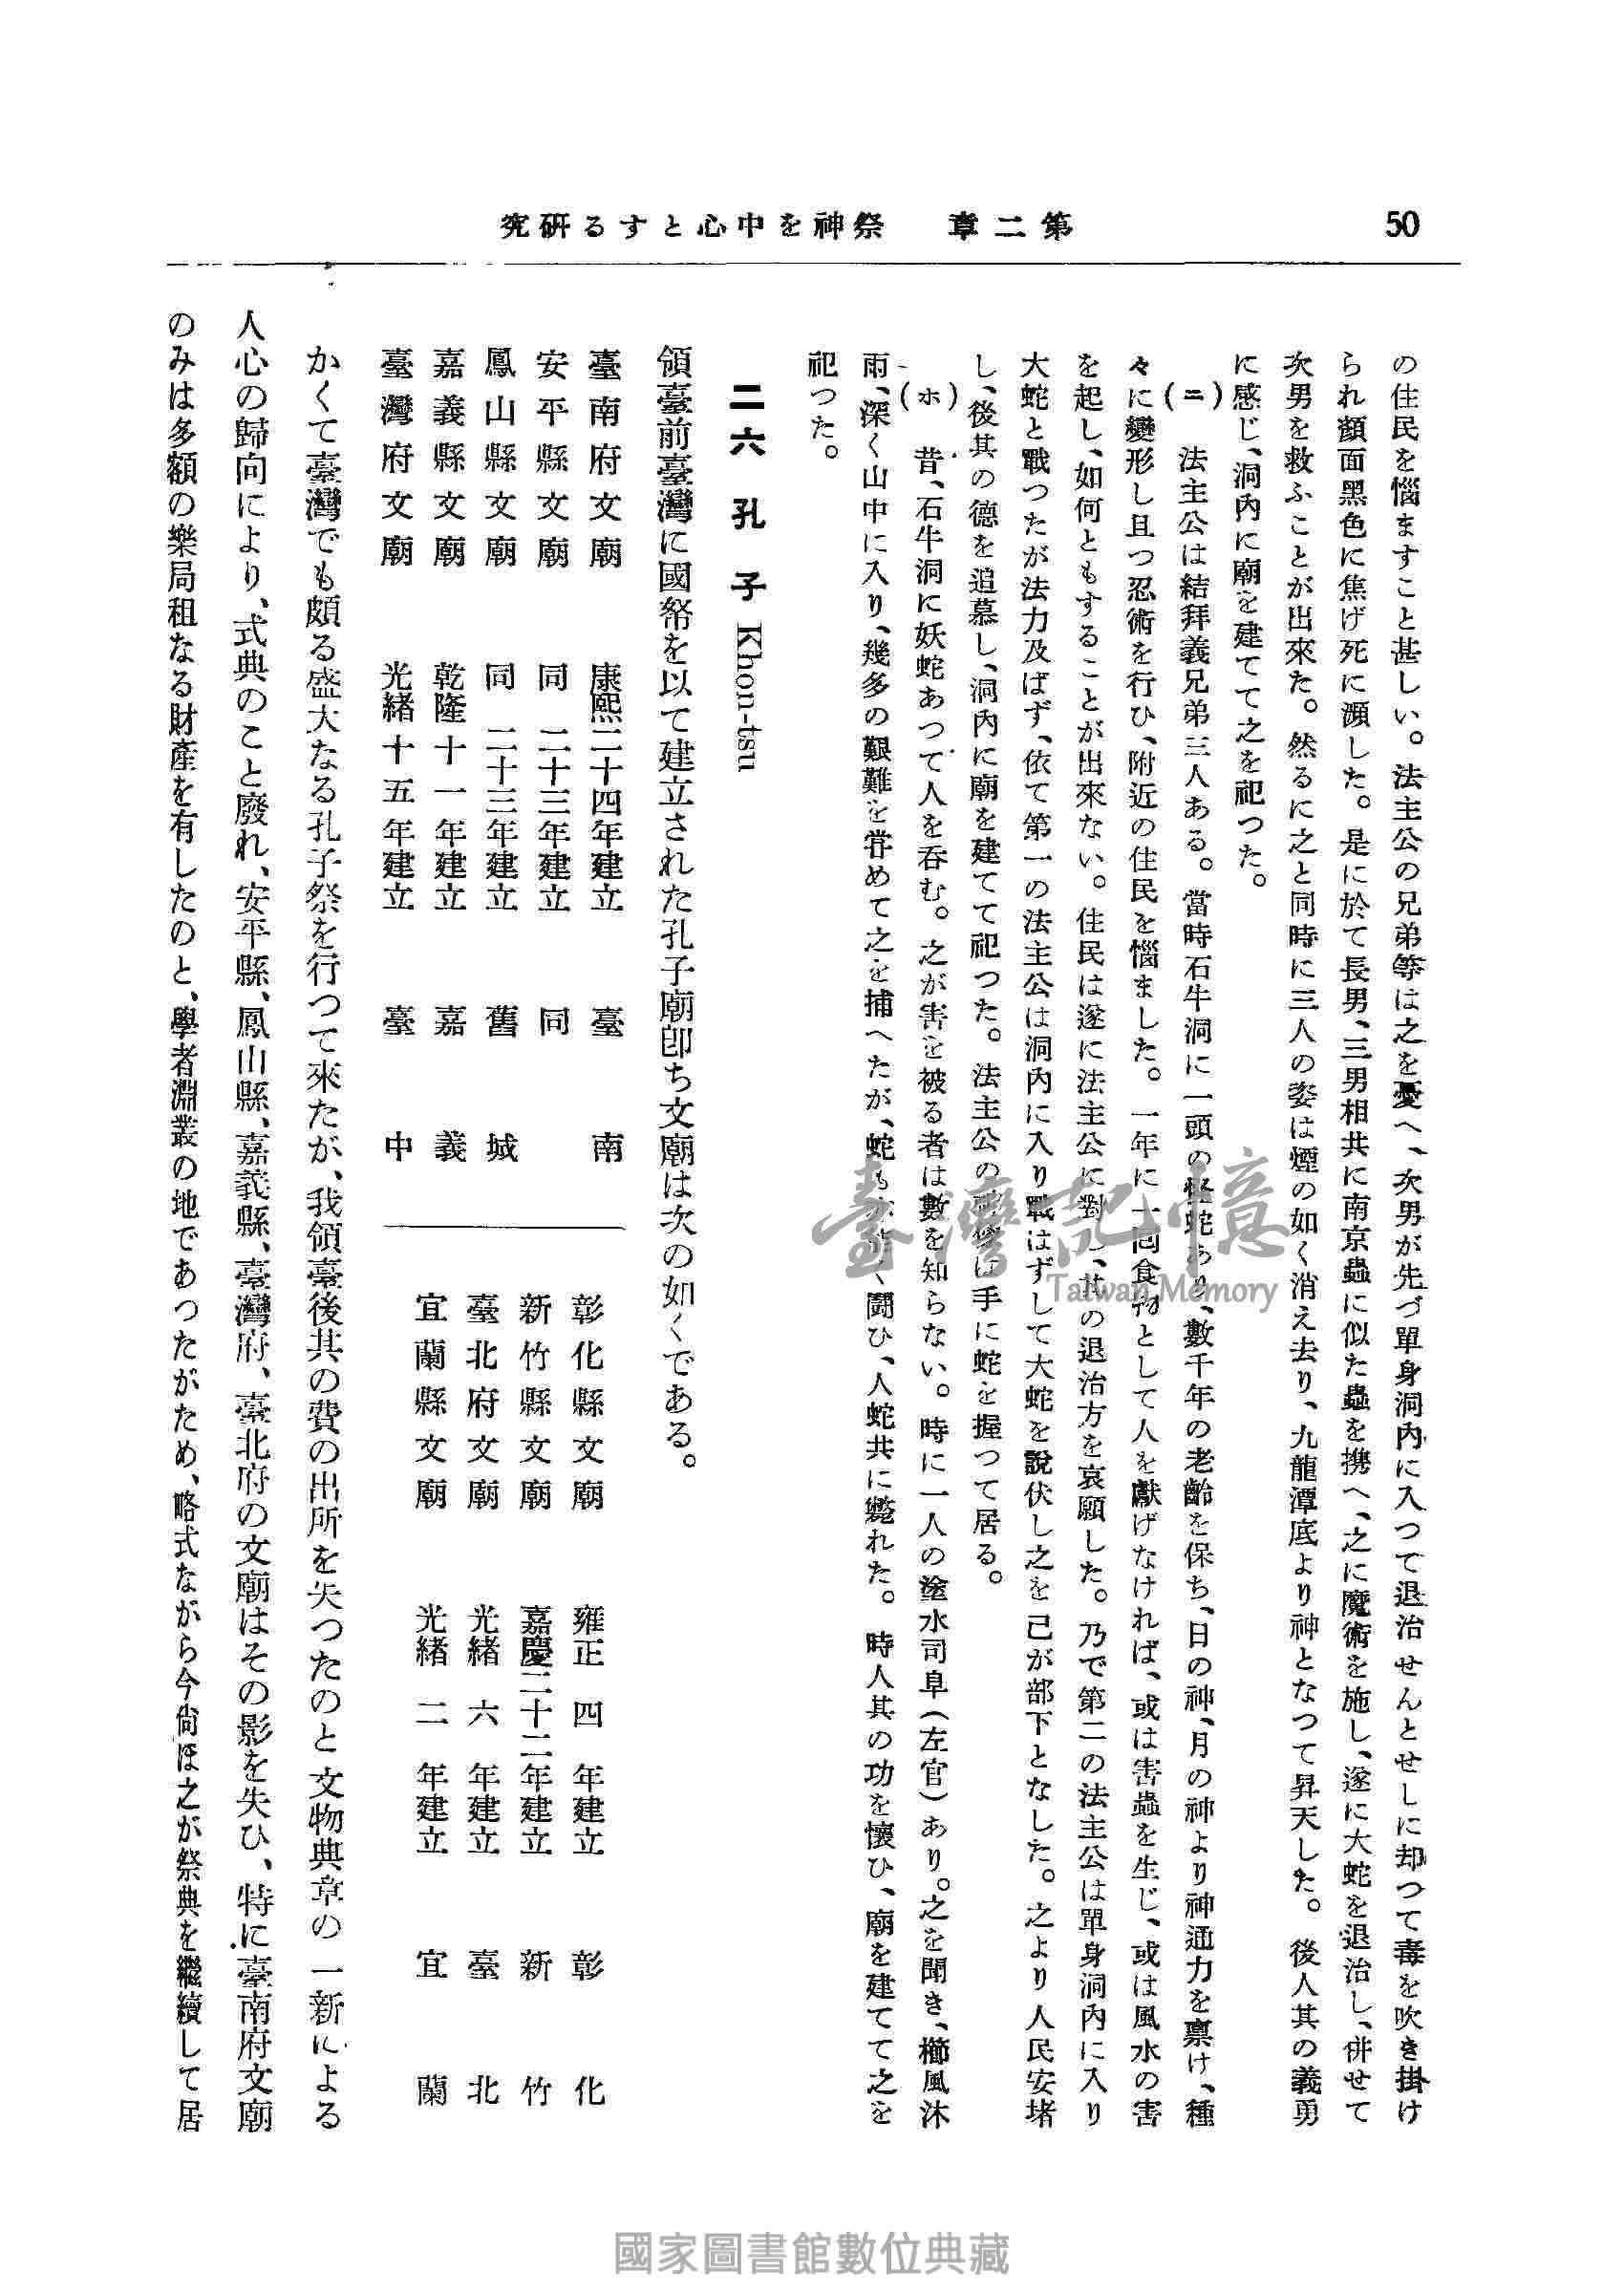 50
第二章 祭神を中心とする硏究
の住民を惱ますこと甚しい。法主公の兄弟等は之を憂へ、次男が先づ單身洞內に入つて退治せんとせしに却つて毒を吹き掛け
られ顏面黑色に焦げ死に瀕した。是に於て長男、三男相共に南京蟲に似た蟲を携へ、之に魔術を施し、遂に大蛇を退治し、併せて
次男を救ふことが出來た。然るに之と同時に三人の姿は煙の如く消え去り、九龍潭底より神となつて昇天した。後人其の義勇
に感じ、洞內に廟を建てて之を祀つた。
(ニ) 法主公は結拜義兄弟三人ある。當時石牛洞に一頭の怪蛇あり、數千年の老齡を保ち、日の神、月の神より神通力を禀け、種
々に變形し且つ忍術を行ひ、附近の住民を惱ました。一年に一回食物として人を獻げなければ、或は害蟲を生じ、或は風水の害
を起し、如何ともすることが出來ない。住民は遂に法主公に對し、其の退治方を哀願した。乃で第二の法主公は單身洞內に入り
大蛇と戰つたが法力及ばず、依て第一の法主公は洞內に入り戰はずして大蛇を說伏し之を己が部下となした。之より人民安堵
し、後其の德を追慕し、洞內に廟を建てて祀つた。法主公の神像は手に蛇を握つて居る。
(ホ) 昔、石牛洞に妖蛇あつて人を吞む。之が害を被る者は數を知らない。時に一人の塗水司阜(左官)あり。之を聞き、櫛風沐
雨、深く山中に入り、幾多の艱難を甞めて之を捕へたが、蛇も亦能く鬪ひ、人蛇共に斃れた。時人其の功を懷ひ、廟を建てて之を
祀つた。
二六 孔子 Khon-tsu
領臺前臺灣に國幣を以て建立された孔子廟卽ち文廟は次の如くである。
臺南府文廟 康熙二十四年建立 臺南
安平縣文廟 同 二十三年建立 同
鳳山縣文廟 同 二十三年建立 舊城
嘉義縣文廟 乾隆十一年建立 嘉義
臺灣府文廟 光緖十五年建立 臺中
彰化縣文廟 雍正四年建立 彰化
新竹縣文廟 嘉慶二十二年建立 新竹
臺北府文廟 光緖六年建立 臺北
宜蘭縣文廟 光緖二年建立 宜蘭
かくて臺灣でも頗る盛大なる孔子祭を行つて來たが、我領臺後其の費の出所を失つたのと文物典章の一新による
人心の歸向により、式典のこと廢れ、安平縣、鳳山縣、嘉義縣、臺灣府、臺北府の文廟はその影を失ひ、特に臺南府文廟
のみは多額の樂局租なる財產を有したのと、學者淵叢の地であつたがため、略式ながら今尙ほ之が祭典を繼續して居
臺灣記憶
Taiwan Memory
國家圖書館數位典藏